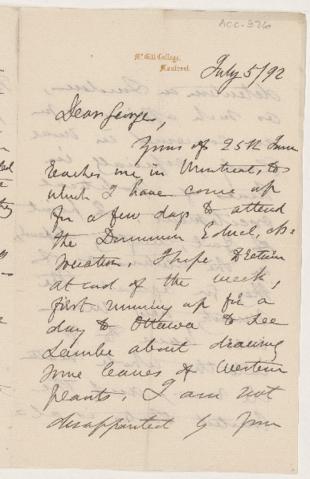 ACC-326
McGill College,
Montreal.
July 5/92
Dear George,
Yours of 25th June
reaches me in Montreal, to
which I have come up
for a few days to attend
the Dominion Educl. As-
sociation. I hope to return
at end of the week,
first running up for a
day to Ottawa to see
Lambe about drawing
some leaves of Western
plants. I am not
disappointed by your